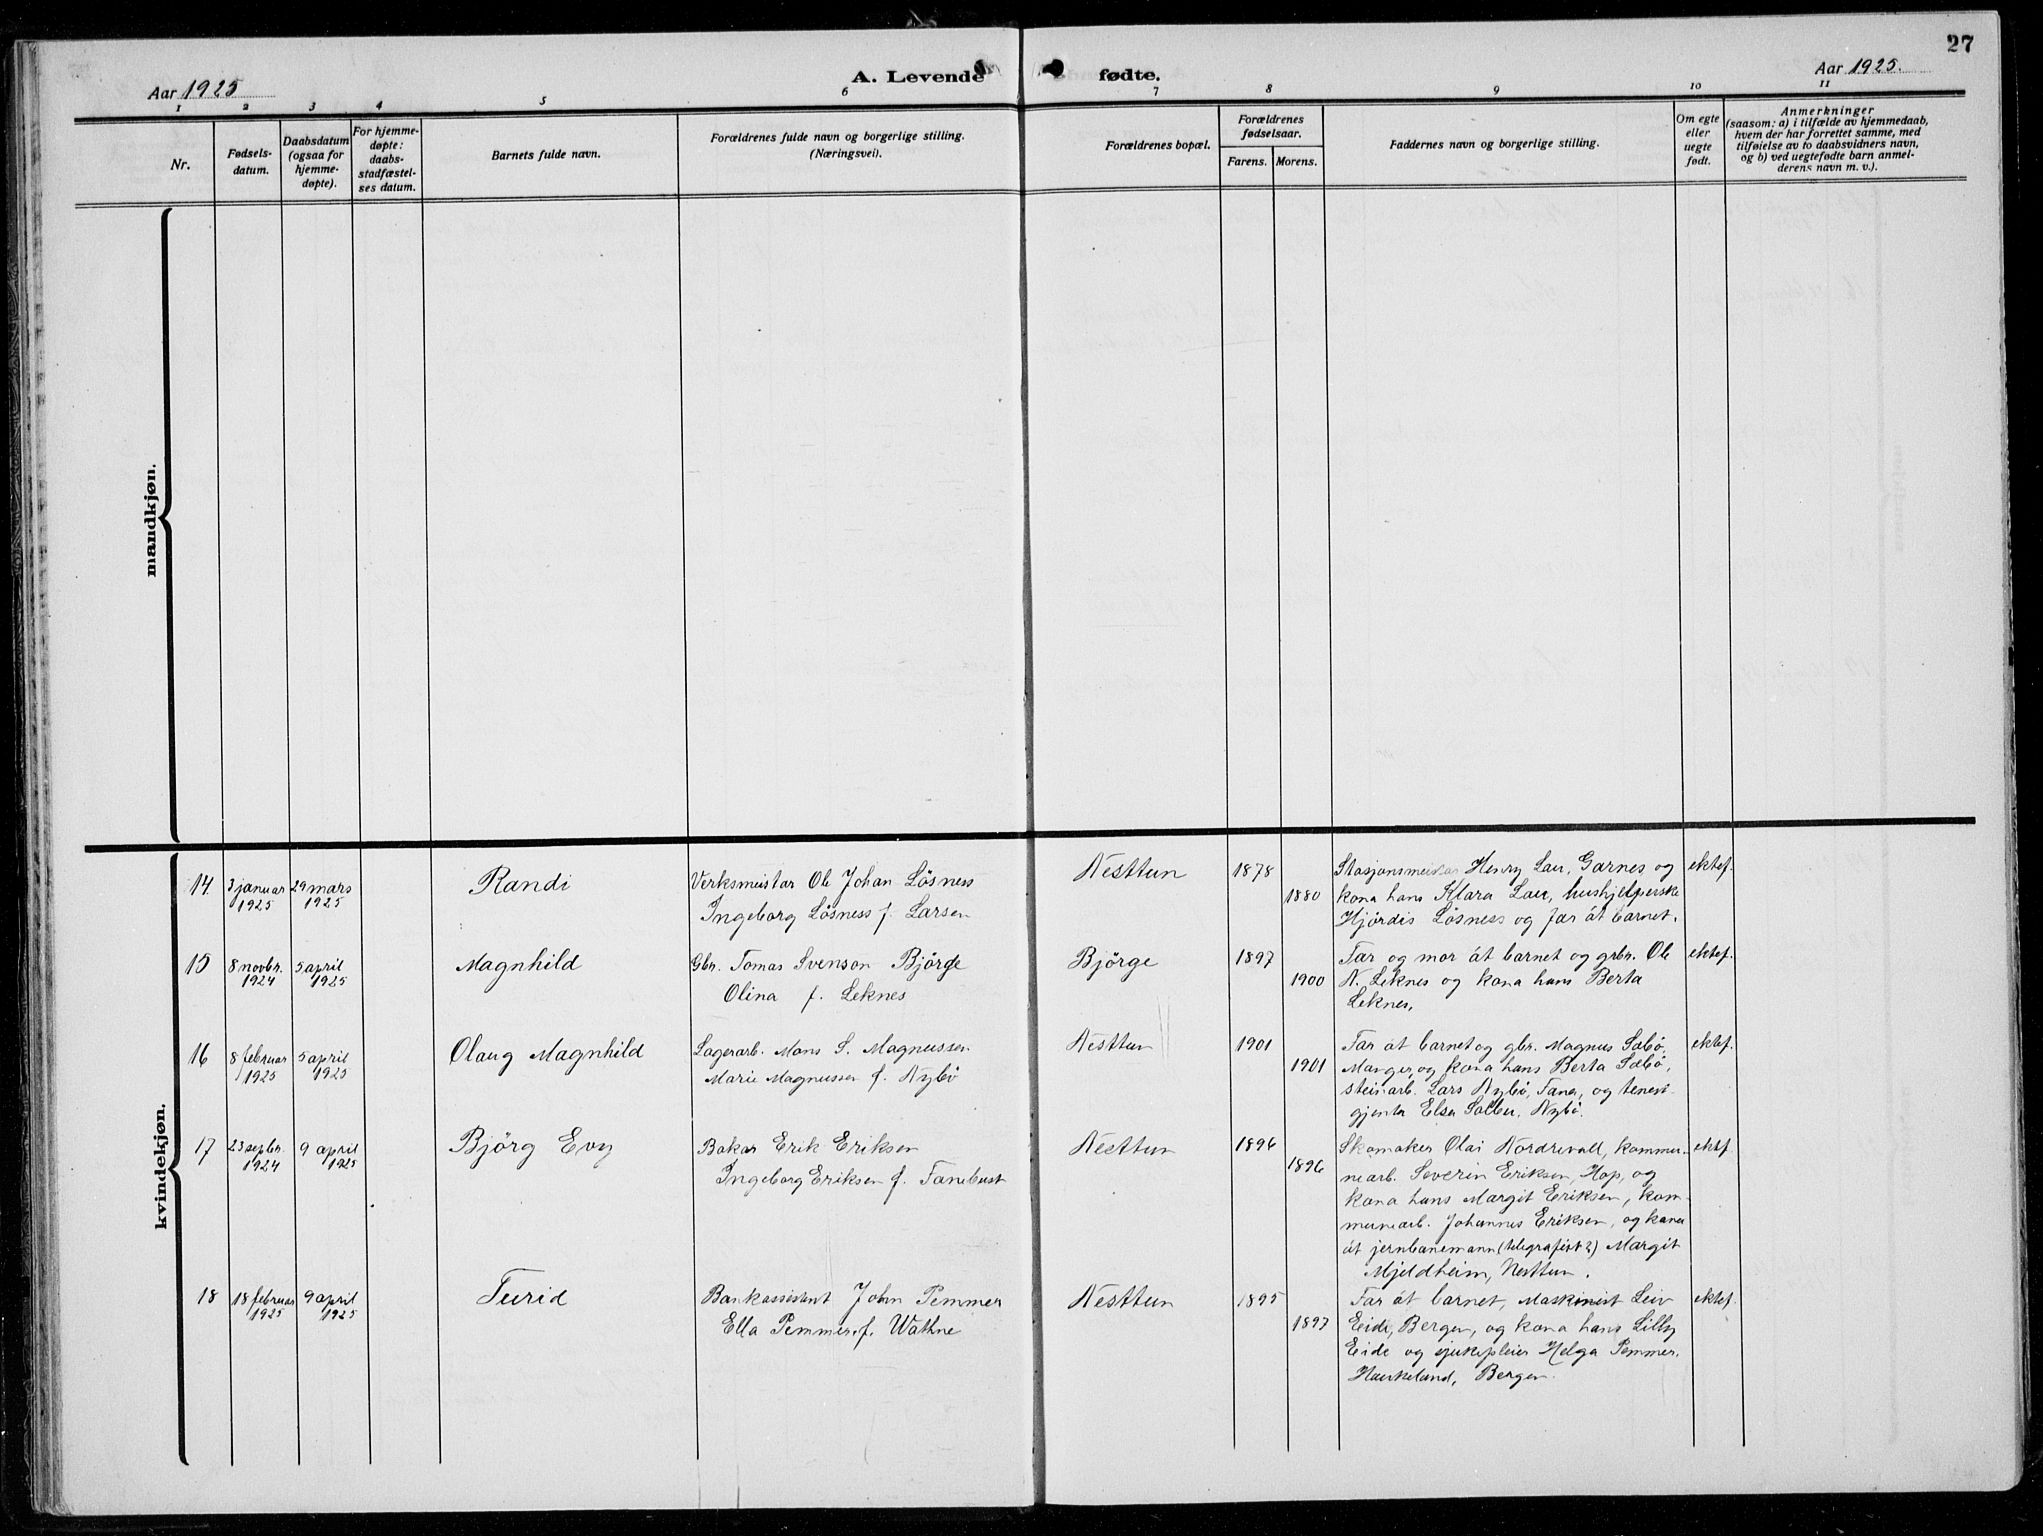 27
Aar 1925
A. Levende
fødte.
Aar 1925.
1 2 3 4 5 6 7 8 9 10 11
Nr.
Fødsels-
datum.
Daabsdatum
(ogsaa for
hjemme-
døpte).
For hjemme-
døpte:
daabs-
stadfæstel-
ses datum.
Barnets fulde navn.
Forældrenes fulde navn og borgerlige stilling.
(Næringsvei).
Forældrenes bopæl.
Forældrenes
fødselsaar.
Farens. Morens.
Faddernes navn og borgerlige stilling.
Om egte
eller
uegte
født.
Anmerkninger
(saasom: a) i tilfælde av hjemmedaab,
hvem der har forrettet samme, med
tilføielse av to daabsvidners navn,
og b) ved uegtefødte barn anmel-
derens navn m. v.).
mandkjøn.
kvindekjøn.
14
3 januar
1925
29 mars
1925
Randi
Verksmeistar Ole Johan Lösness
Ingeborg Lösness f. Larsen
Nesttun
1878
1880
Stasjonsmeistar Henry Lau, Garnes, og
kona hans Klara Lau, hushjelperske
Hjördis Lösness og far åt barnet.
ektef.
15
8 novbr.
1924
5 april
1925
Magnhild
Gbr. Tomas Svenson Björge
Olina f. Leknes
Björge
1897
1900
Far og mor åt barnet og grbr. Ole
N. Leknes og kona hans Berta
Leknes.
ektef.
16
8 februar
1925
5 april
1925
Olaug Magnhild
Lagerarb. Mons S. Magnussen
Marie Magnussen f. Nybö
Nesttun
1901
1901
Far åt barnet og gbr. Magnus Sæbö,
Manger, og kona hans Berta Sæbö,
steinarb. Lars Nybö, Fana, og tenest-
gjenta Elsa Nybö.
ektef.
17
23 septbr.
1924
9 april
1925
Björg Evy
Bakar Erik Eriksen
Ingeborg Eriksen f. Tanebust
Nesttun
1896
1896
Skomaker Olai Nordrevall, kommu-
nearb. Severin Eriksen, Hop, og
kona hans Margit Eriksen, kom-
munearb. Johannes Eriksen, og kona
åt jernbanemann (telegrafist?) Margit
Mjeldheim, Nesttun.
ektef.
18
18 februar
1925
9 april
1925
Turid
Bankassistent John Pemmer
Ella Pemmer f. Wathne
Nesttun
1895
1897
Far åt barnet, Maskinist Leiv
Eide, Bergen, og kona hans Lilly
Eide og sjukepleier Helga Pemmer,
Haukeland, Bergen.
ektef.